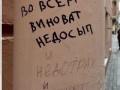 ВО ВСЁМ
ВИНОВАТ
НЕДОСЫП
И
НЕДОТРАХ
И